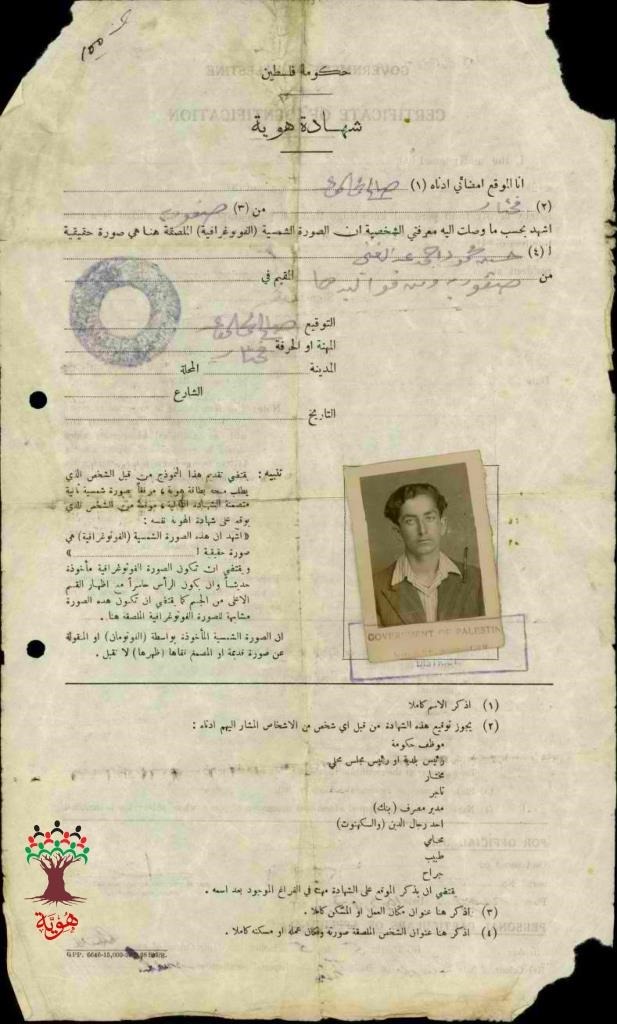 حكومة فلسطين
شهادة هوية
انا الموقع امضائي ادناه (١)
(٢) مختار من (٣) صفورية
اشهد بحسب ما وصلت اليه معرفتي الشخصية ان الصورة الشمسية (الفوتوغرافية) الملصقة هنا هي صورة حقيقية
ا (٤) محمود احمد عبد الغني
من صفورية المقيم في
التوقيع
المهنة او الحرفة مختار
المدينة المحلة
الشارع
التاريخ
تنبيه : يقتضي تقديم هذا النموذج من قبل الشخص الذي
يطلب منحه بطاقة هوية ، مرفقاً بصورة شمسية ثانية
متضمنة الشهادة التالية ، موقعة من الشخص الذي
يوقع على شهادة الهوية نفسه :
«اشهد ان هذه الصورة الشمسية (الفوتوغرافية) هي
صورة حقيقية ا »
ويقتضي ان تكون الصورة الفوتوغرافية مأخوذة
حديثاً وان يكون الرأس حاسراً مع اظهار القسم
الاعلى من الجسم كما يقتضي ان تكون هذه الصورة
مشابهة للصورة الفوتوغرافية الملصقة هنا .
ان الصورة الشمسية المأخوذة بواسطة (الفوتومان) او المنقولة
عن صورة قديمة او المصمغ قفاها (ظهرها) لا تقبل .
GOVERNMENT OF PALESTIN
(١) اذكر الاسم كاملا
(٢) يجوز توقيع هذه الشهادة من قبل اي شخص من الاشخاص المشار اليهم ادناه :
موظف حكومة
رئيس بلدية او رئيس مجلس محلي
مختار
تاجر
مدير مصرف (بنك)
احد رجال الدين (والكهنوت)
محامي
طبيب
جراح
يقتضي ان يذكر الموقع على الشهادة مهنته في الفراغ الموجود بعد اسمه .
(٣) اذكر هنا عنوان مكان العمل او المسكن كاملا .
(٤) اذكر هنا عنوان الشخص الملصقة صورته ومكان عمله او مسكنه كاملا .
هُوِيَّة
G.P.P. 6646-15,000